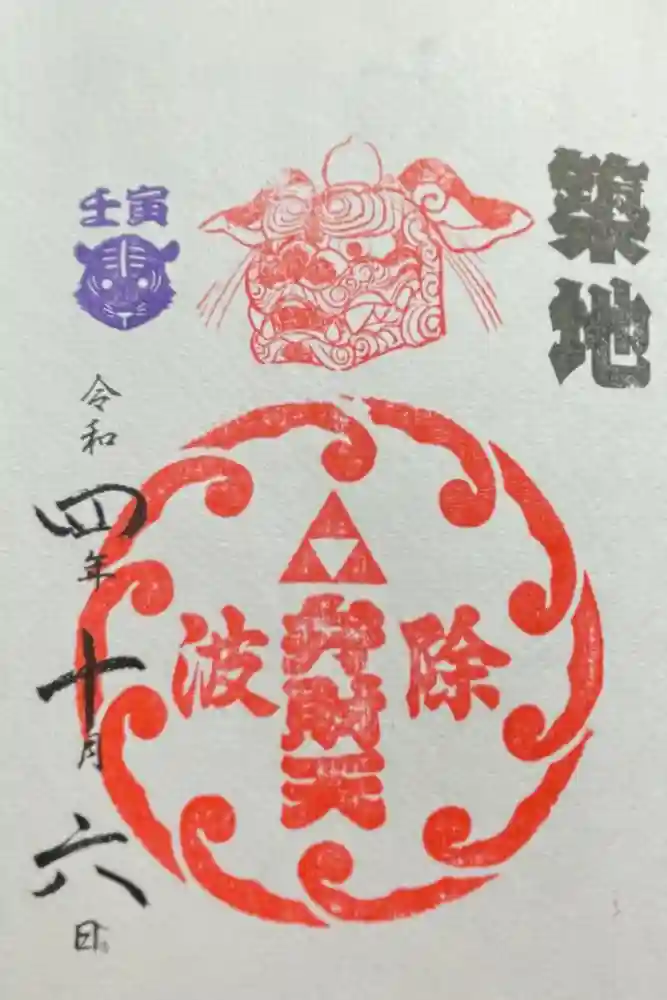 築地
除
弁財天
波
壬寅
令和四年十月六日